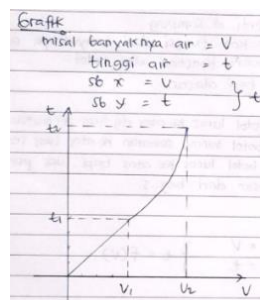 Grafik
misal banyaknya air = V
tinggi air = t
sb x = V
sb y = t
t
t2
t1
V1
V2
V